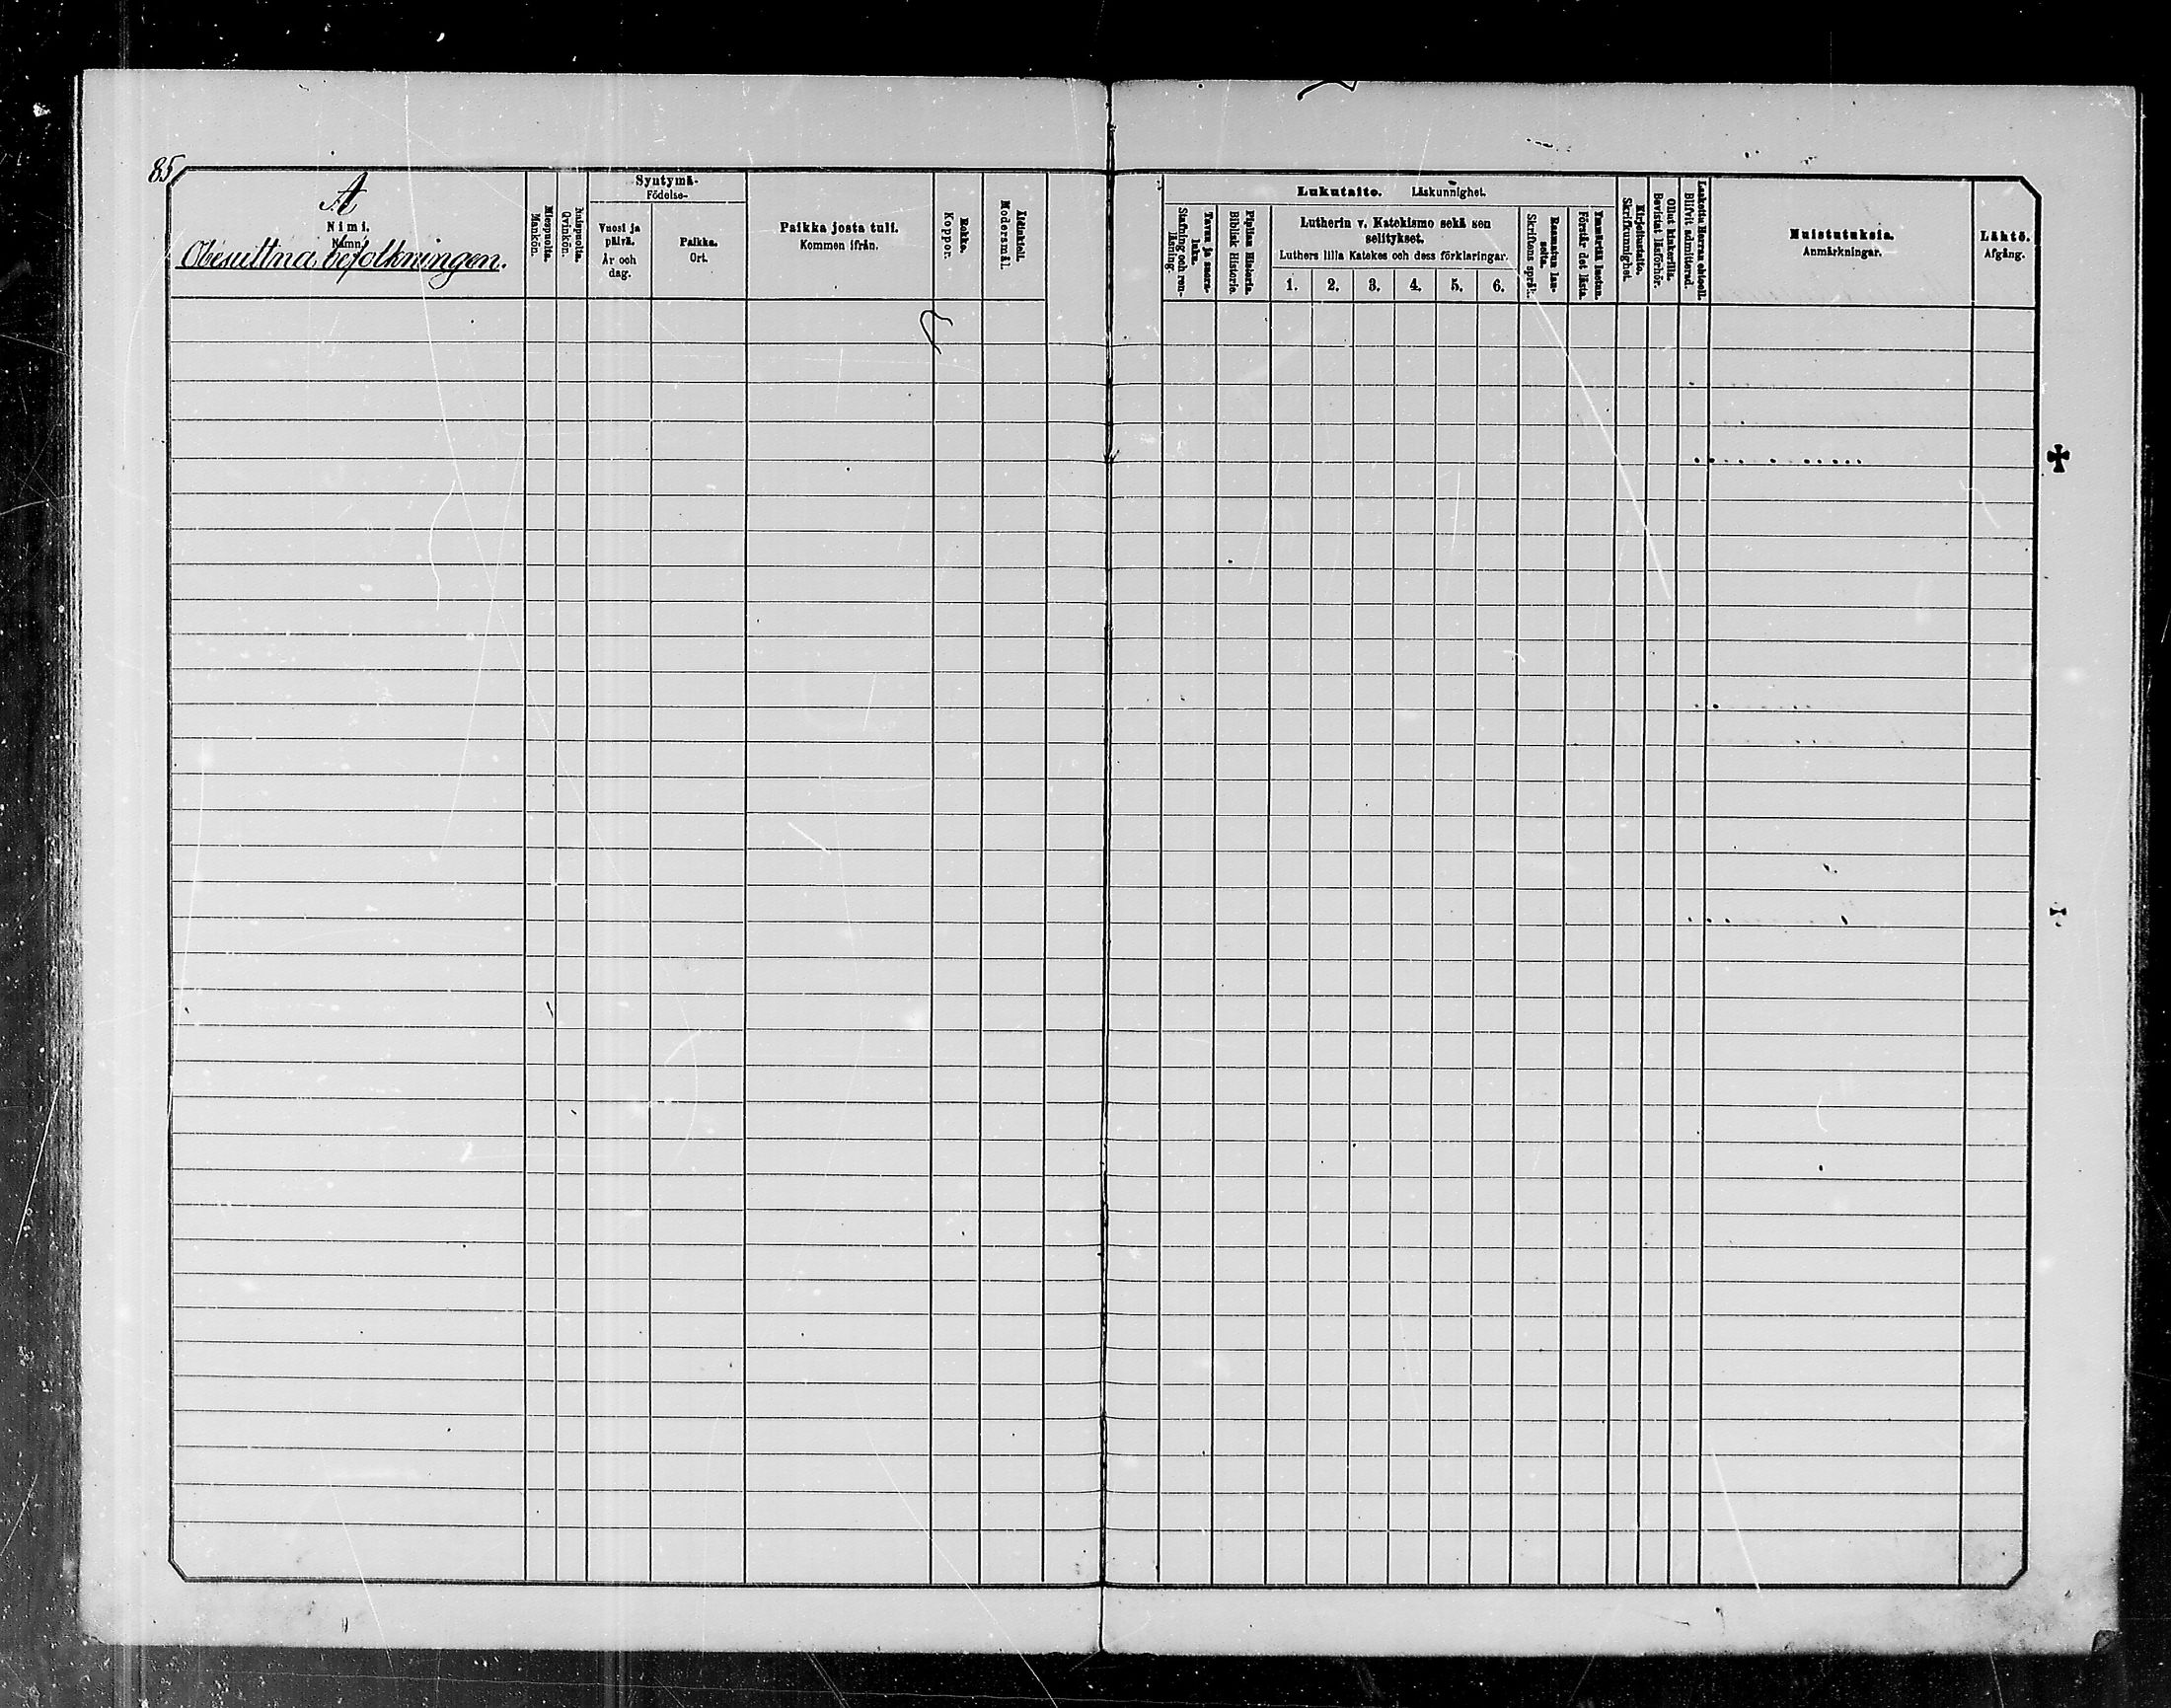 85
A
Nimi.
Namn.
Obesuttna befolkningen.
Miespuolia.
Mankön.
Naispuolia.
Qvinkön.
Syntymä-
Födelse-
Vuosi ja
päivä.
År och
dag.
Paikka.
Ort.
Paikka josta tuli.
Kommen ifrån.
Rokko.
Koppor.
Äidinkieli.
Modersmål.
Lukutaito. Läskunnighet.
Tavan ja suora-
luku.
Stafning och ren-
läsning.
Piplian Historia.
Biblisk Historie.
Lutherin v. Katekismo sekä sen
selitykset.
Luthers lilla Katekes och dess förklaringar.
1. 2. 3. 4. 5. 6.
Raamatun lau-
seita.
Skriftens språk.
Ymmärtää luetun.
Förstår det lästa.
Kirjoitustaito.
Skrifkunnighet.
Ollut kinkerillä.
Bevistat läsförhör.
Laskettu Herran ehtooll.
Blifvit admitterad.
Muistutuksia.
Anmärkningar.
Lähtö.
Afgång.